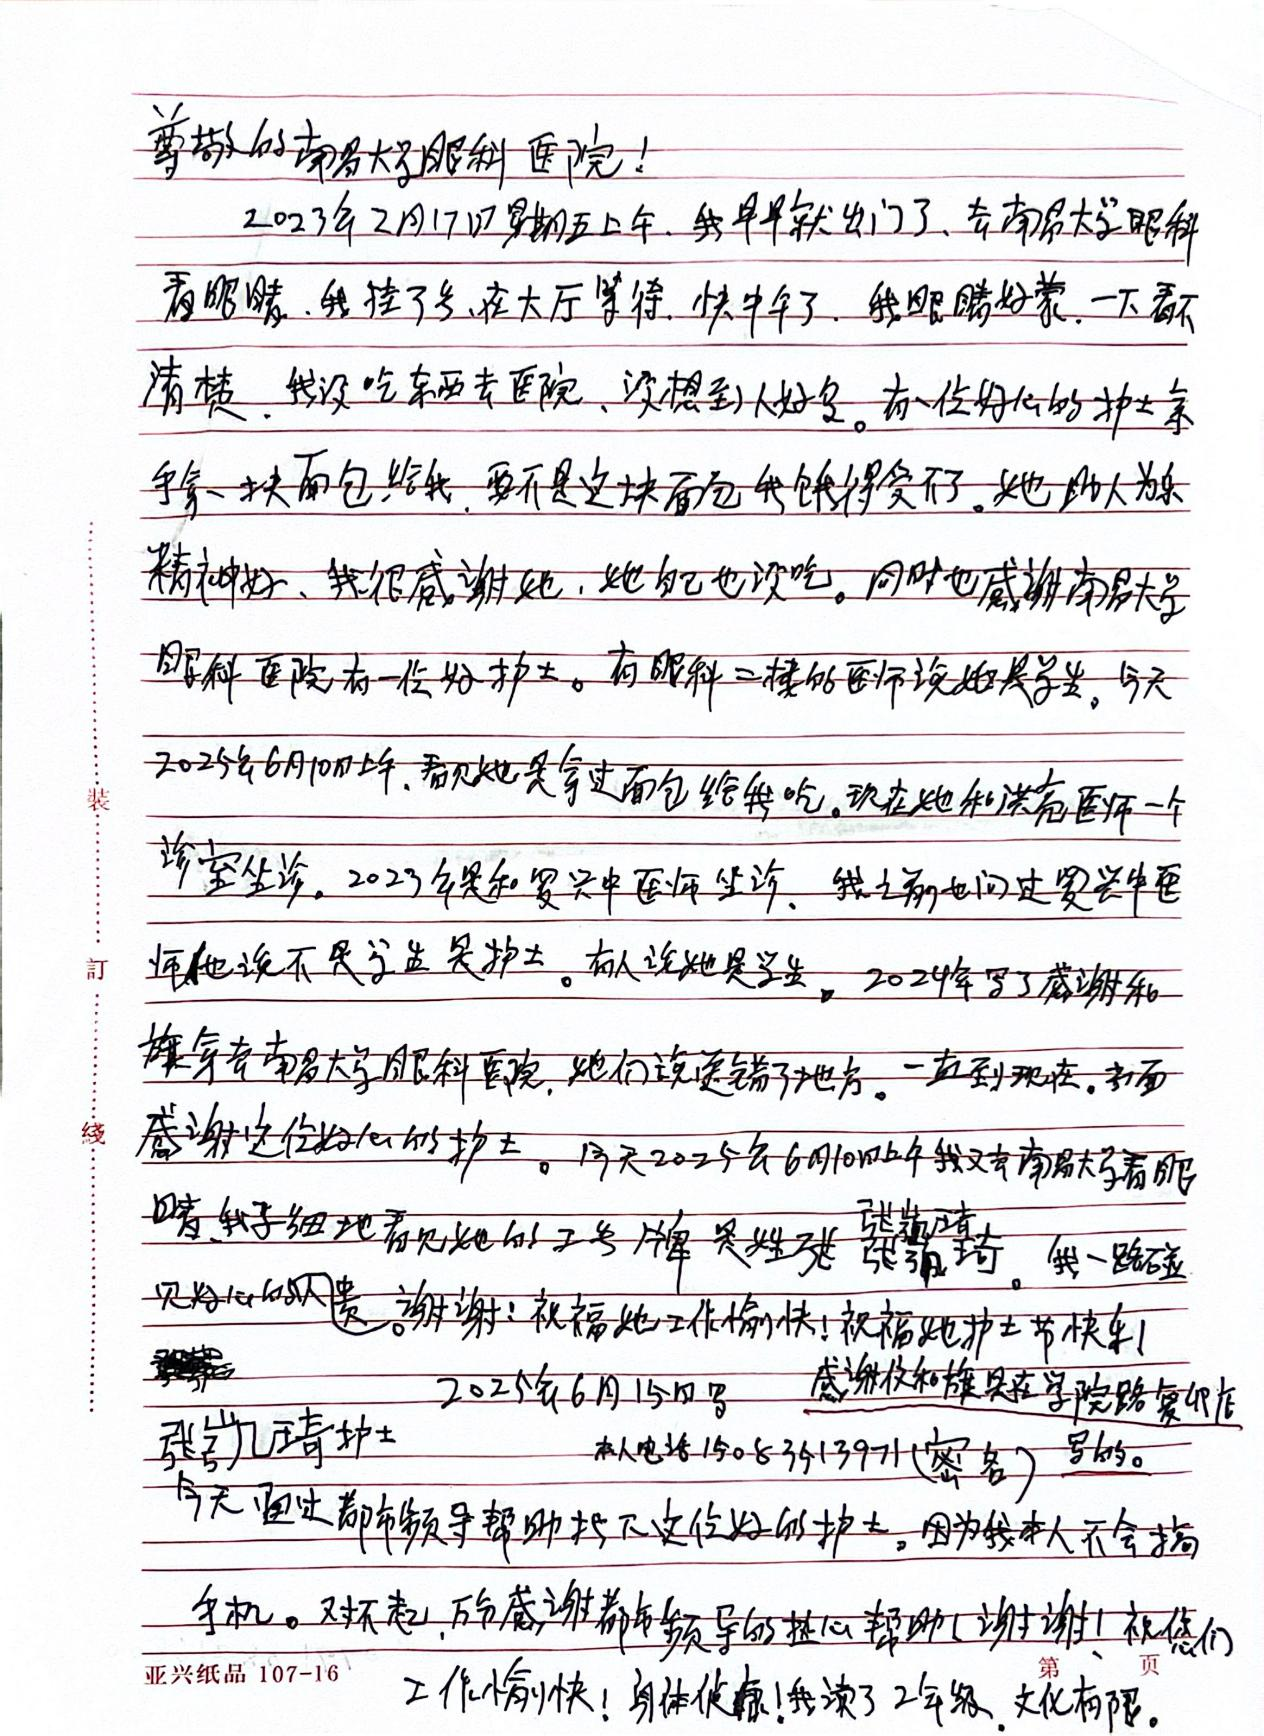 尊敬的南昌大学眼科医院！
2023年2月17日星期五上午、我早早就出门了、去南昌大学眼科
看眼睛、我挂了号、在大厅等待、快中午了、我眼睛好蒙、一下看不
清楚、我没吃东西去医院、没想到人好多。有一位好心的护士亲
手拿一块面包给我、要不是这块面包我饿得受不了。她助人为乐
精神好、我很感谢她、她自己也没吃。同时也感谢南昌大学
眼科医院有一位好护士。有眼科二楼的医师说她是学生。今天
2025年6月10日上午、看见她是拿过面包给我吃。现在她和洪亮医师一个
诊室坐诊。2023年是和罗兴中医师坐诊、我之前也问过罗兴中医
师他说不是学生是护士。有人说她是学生。2024年写了感谢和
旗拿去南昌大学眼科医院、她们说送错了地方。一直到现在。当面
感谢这位好心的护士。今天2025年6月10日上午我又去南昌大学看眼
睛、我子细地看见她的工号牌是姓张 张 琦。我一路碰
见好心的贵。谢谢！祝福她工作愉快！祝福她护士节快乐！
2025年6月15日写 感谢信和旗是在学院路复印店
张 琦护士 本人电话15083513971（密名） 写的。
今天通过都市频导帮助找下这位好的护士。因为我本人不会搞
手机。对不起、万分感谢都市频导的热心帮助！谢谢！祝您们
工作愉快！身体健康！我读了2年级、文化有限。
装
訂
綫
亚兴纸品 107-16
第 页